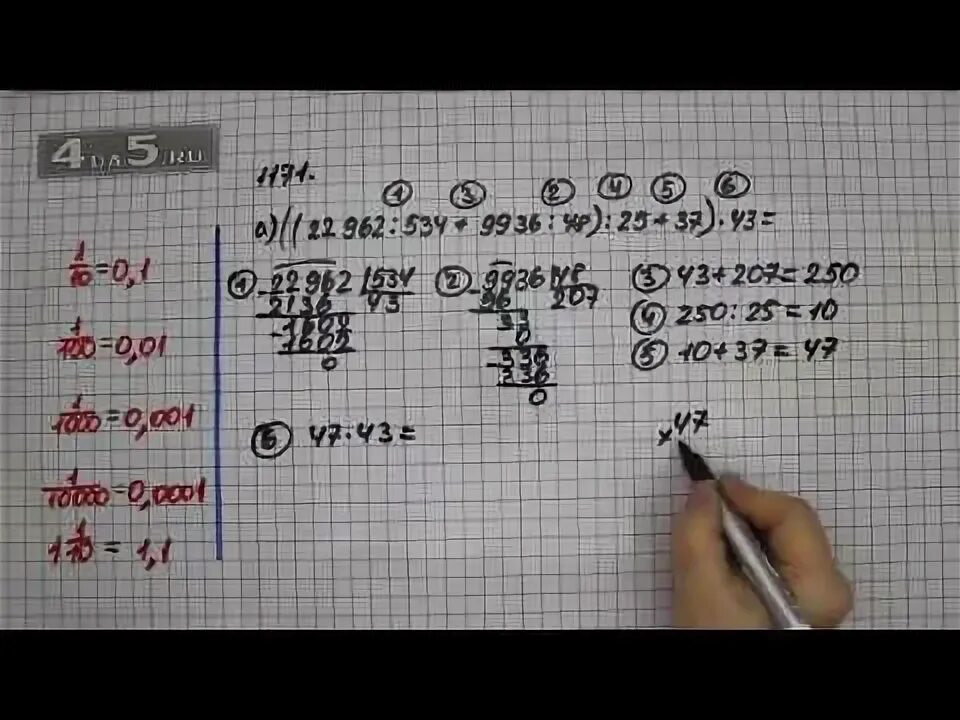 4 на 5.RU
1171.
1 3 2 4 5 6
а)((22 962 : 534 + 9936 : 48) : 25 + 37) · 43 =
1/10 = 0,1
1/100 = 0,01
1/1000 = 0,001
1/10000 = 0,0001
1 1/10 = 1,1
1 22962 | 534
- 2136 43
1602
- 1602
0
2 9936 | 48
- 96 207
33
0
336
- 336
0
3 43 + 207 = 250
4 250 : 25 = 10
5 10 + 37 = 47
6 47 · 43 =
x 47